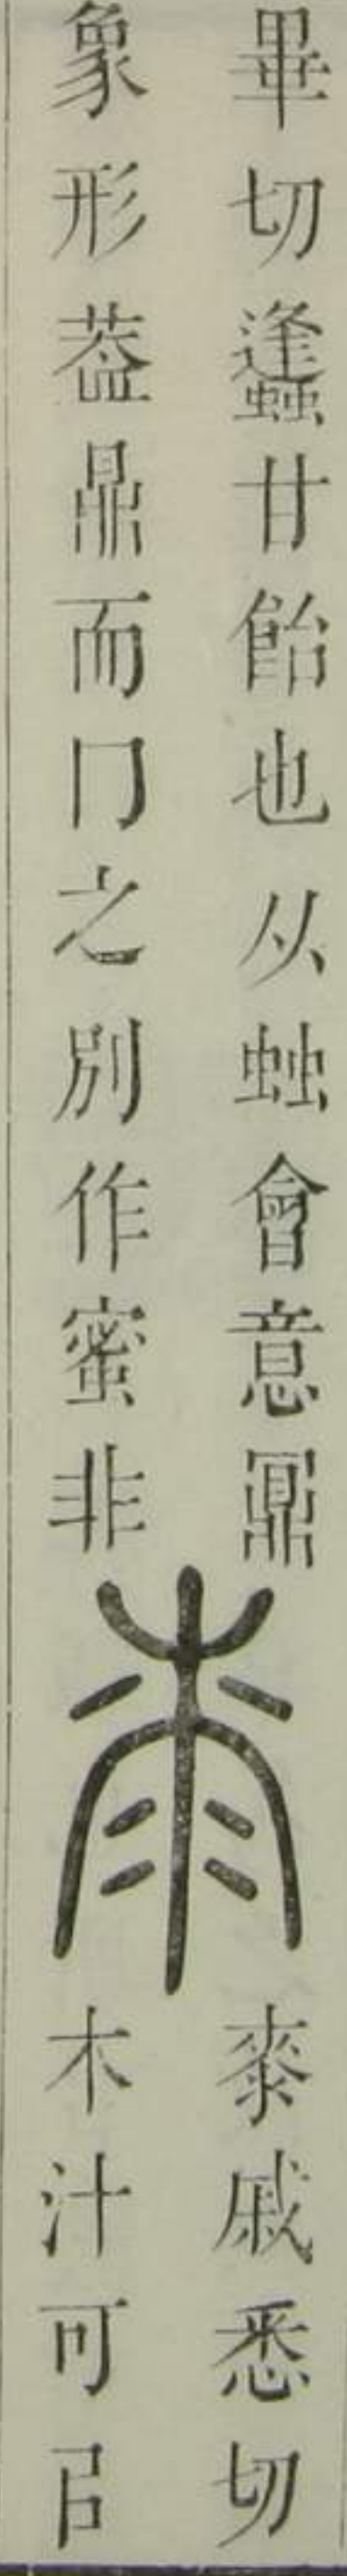 畢切蠭甘飴也从䖵會意鼏
象形葢鼎而冂之別作蜜非
桼
桼戚悉切
木汁可㠯